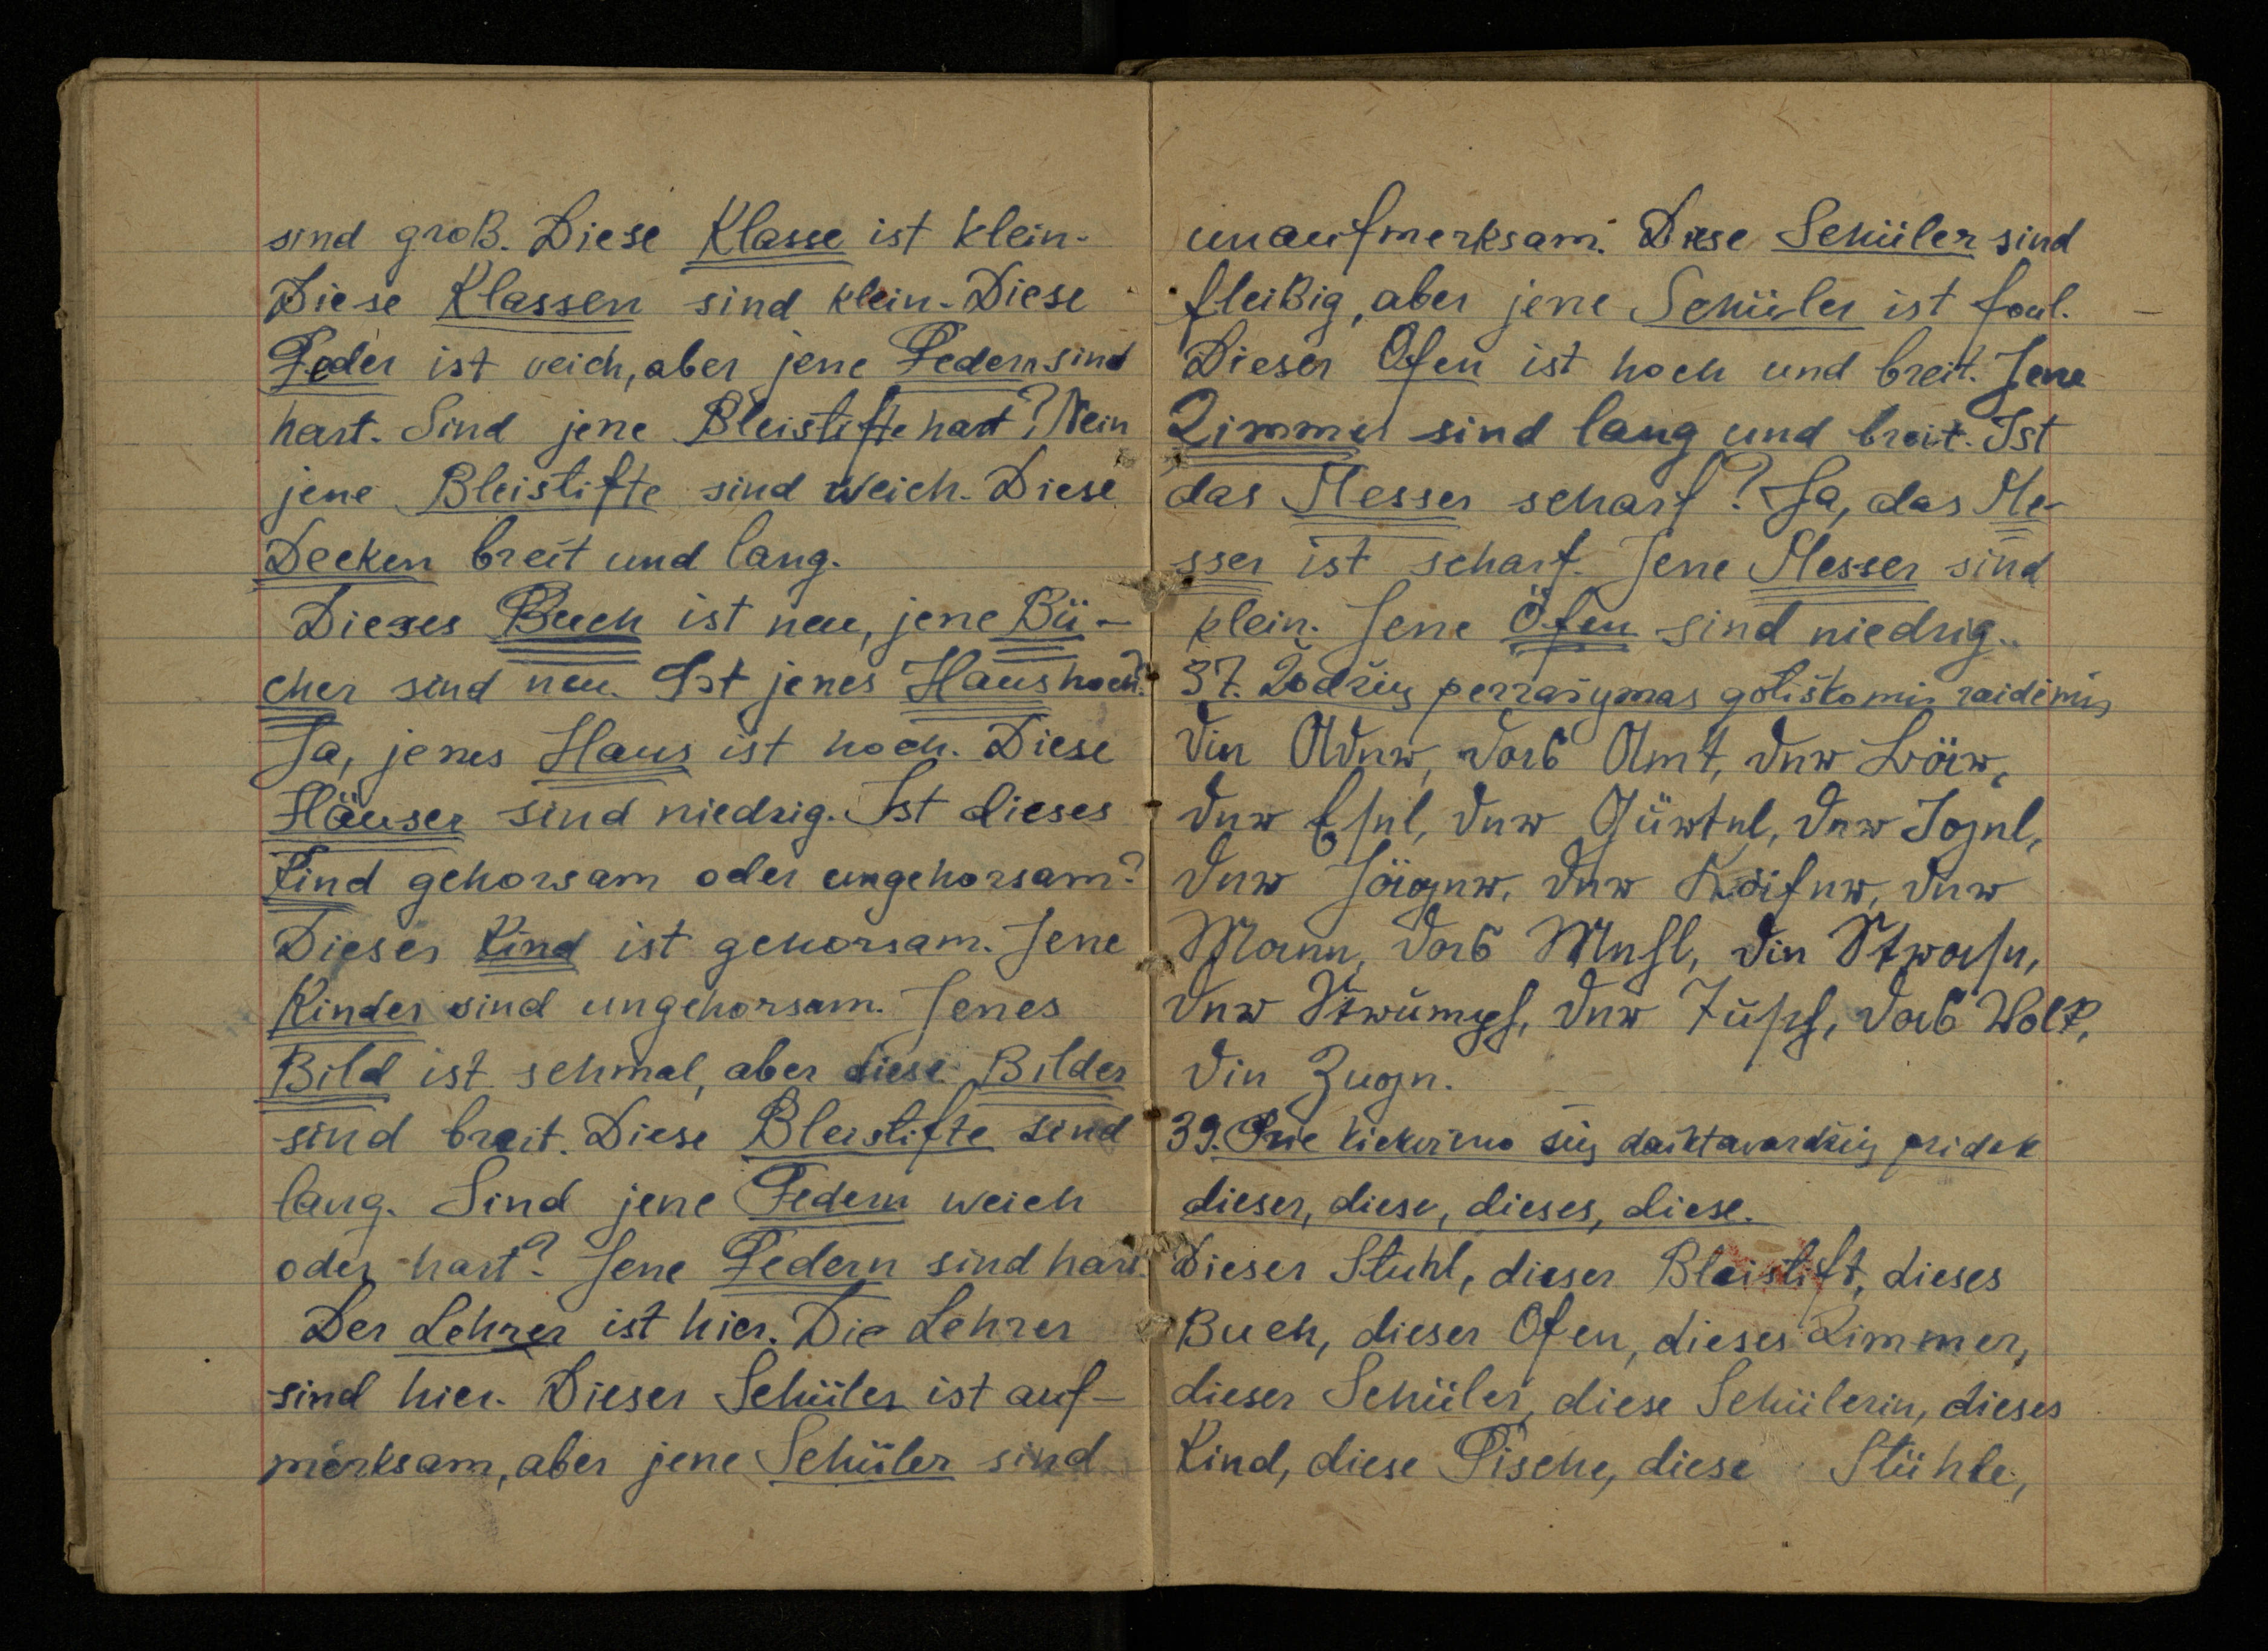 sind groß. Diese Klasse ist klein.
Diese Klassen sind klein. Diese
Feder ist veich, aber jene Federn sind
hart. Sind jene Bleistifte hart? Nein
jene Bleistifte sind weich. Diese
Decken breit und lang.
Dieses Buch ist neu, jene Bü-
cher sind neu. Ist jenes Haus hoch?
Ja, jenes Haus ist hoch. Diese
Häuser sind niedrig. Ist dieses
Kind gehorsam oder ungehorsam?
Dieses Kind ist gehorsam. Jene
Kinder sind ungehorsam. Jenes
Bild ist schmal, aber diese Bilder
sind breit. Diese Bleistifte sind
lang. Sind jene Federn weich
oder hart? Jene Federn sind hart.
Der Lehrer ist hier. Die Lehrer
sind hier. Dieser Schüler ist auf-
merksam, aber jene Schüler sind
unaufmerksam. Diese Schüler sind
fleißig, aber jene Schüler ist faul.
Dieser Ofen ist hoch und breit. Jene
Zimmer sind lang und breit. Ist
das Messer scharf? Ja, das Me-
sser ist scharf. Jene Messer sind
klein. Jene Öfen sind niedrig.
37. Žodžių perrašymas gotiškomis raidėmis
die Ader, das Amt, der Bär,
der Esel, der Gürtel, der Igel,
der Jäger, der Käfer, der
Mann, das Mehl, die Strase,
der Strumpf, der das Volk,
die Zuge.
39. Prie kiekvieno šių daiktavardžių pridėk
dieser, diese, dieses, diese.
Dieser Stuhl, dieser Bleistift, dieses
Buch, dieser Ofen, dieses Zimmer,
dieser Schüler, diese Schülerin, dieses
Kind, diese Tische, diese Stühle,